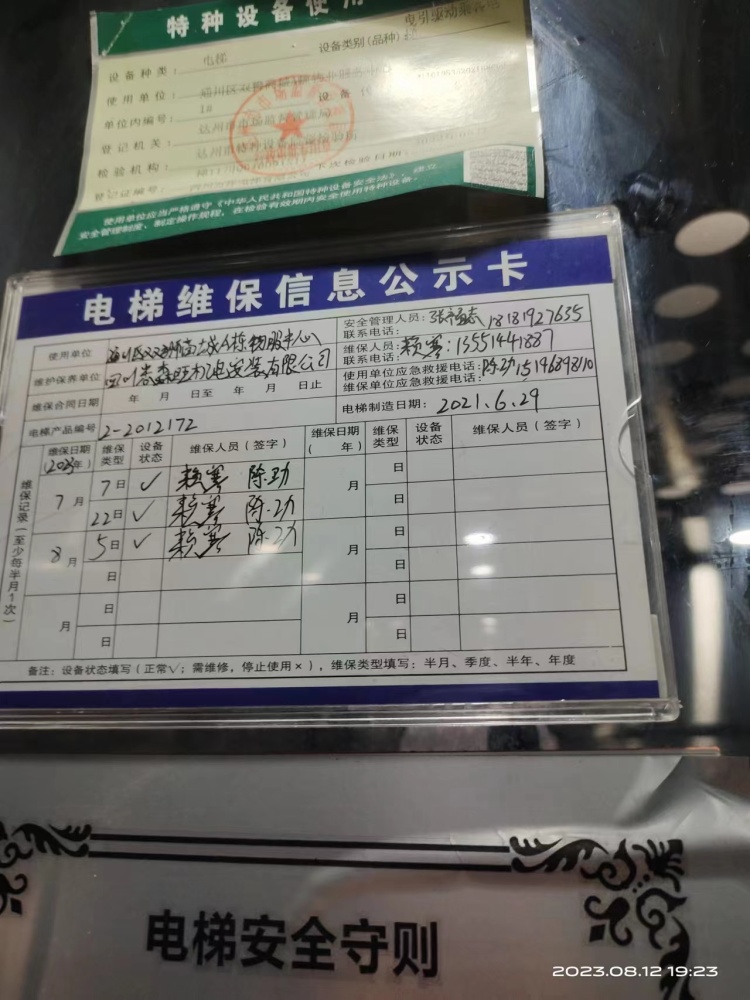 特种设备使用
设备种类： 电梯 设备类别(品种)：
使用单位：
单位内编号： 1# 设备代
登记机关： 达州市市场监督管理局
检验机构： 达州市特种设备监督检验所
登记证编号： 下次检验日期：
使用单位应当严格遵守《中华人民共和国特种设备安全法》，建立
安全管理制度、制定操作规程，在检验有效期内安全使用特种设备。
电梯维保信息公示卡
使用单位 安全管理人员： 18181927635
联系电话：
维护保养单位 机电安装有限公司 维保人员：赖寒 13551441887
联系电话：
维保合同日期 年 月 日至 年 月 日止 使用单位应急救援电话：陈功15196898110
维保单位应急救援电话：
电梯产品编号 2-2012172 电梯制造日期： 2021.6.29
维保记录（至少每半月1次）
维保日期 (2023年) 维保类型 设备状态 维保人员（签字） 维保日期 ( 年) 维保类型 设备状态 维保人员（签字）
7月 7日 ✓ 赖寒 陈功 月 日
22日 ✓ 赖寒 陈功 日
8月 5日 ✓ 赖寒 陈功 月 日
日 日
月 日 月 日
日 日
备注：设备状态填写（正常√；需维修，停止使用×），维保类型填写：半月、季度、半年、年度
电梯安全守则
2023.08.12 19:23